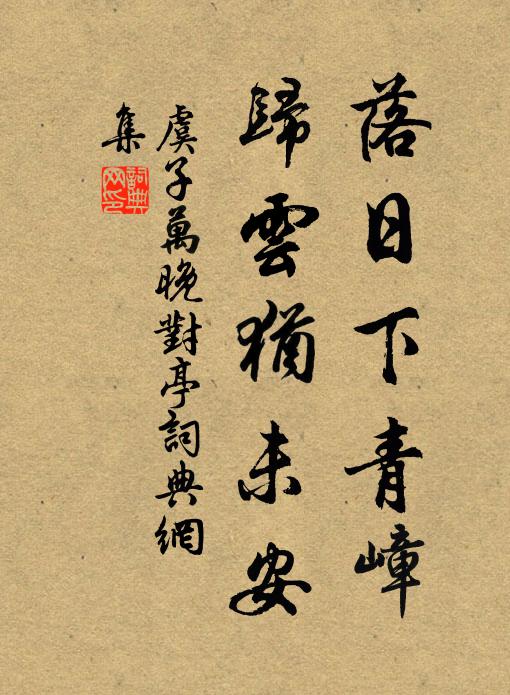 落日下青嶂
歸雲猶未安
虞子萬晚對亭詞典網
集
詞典网印